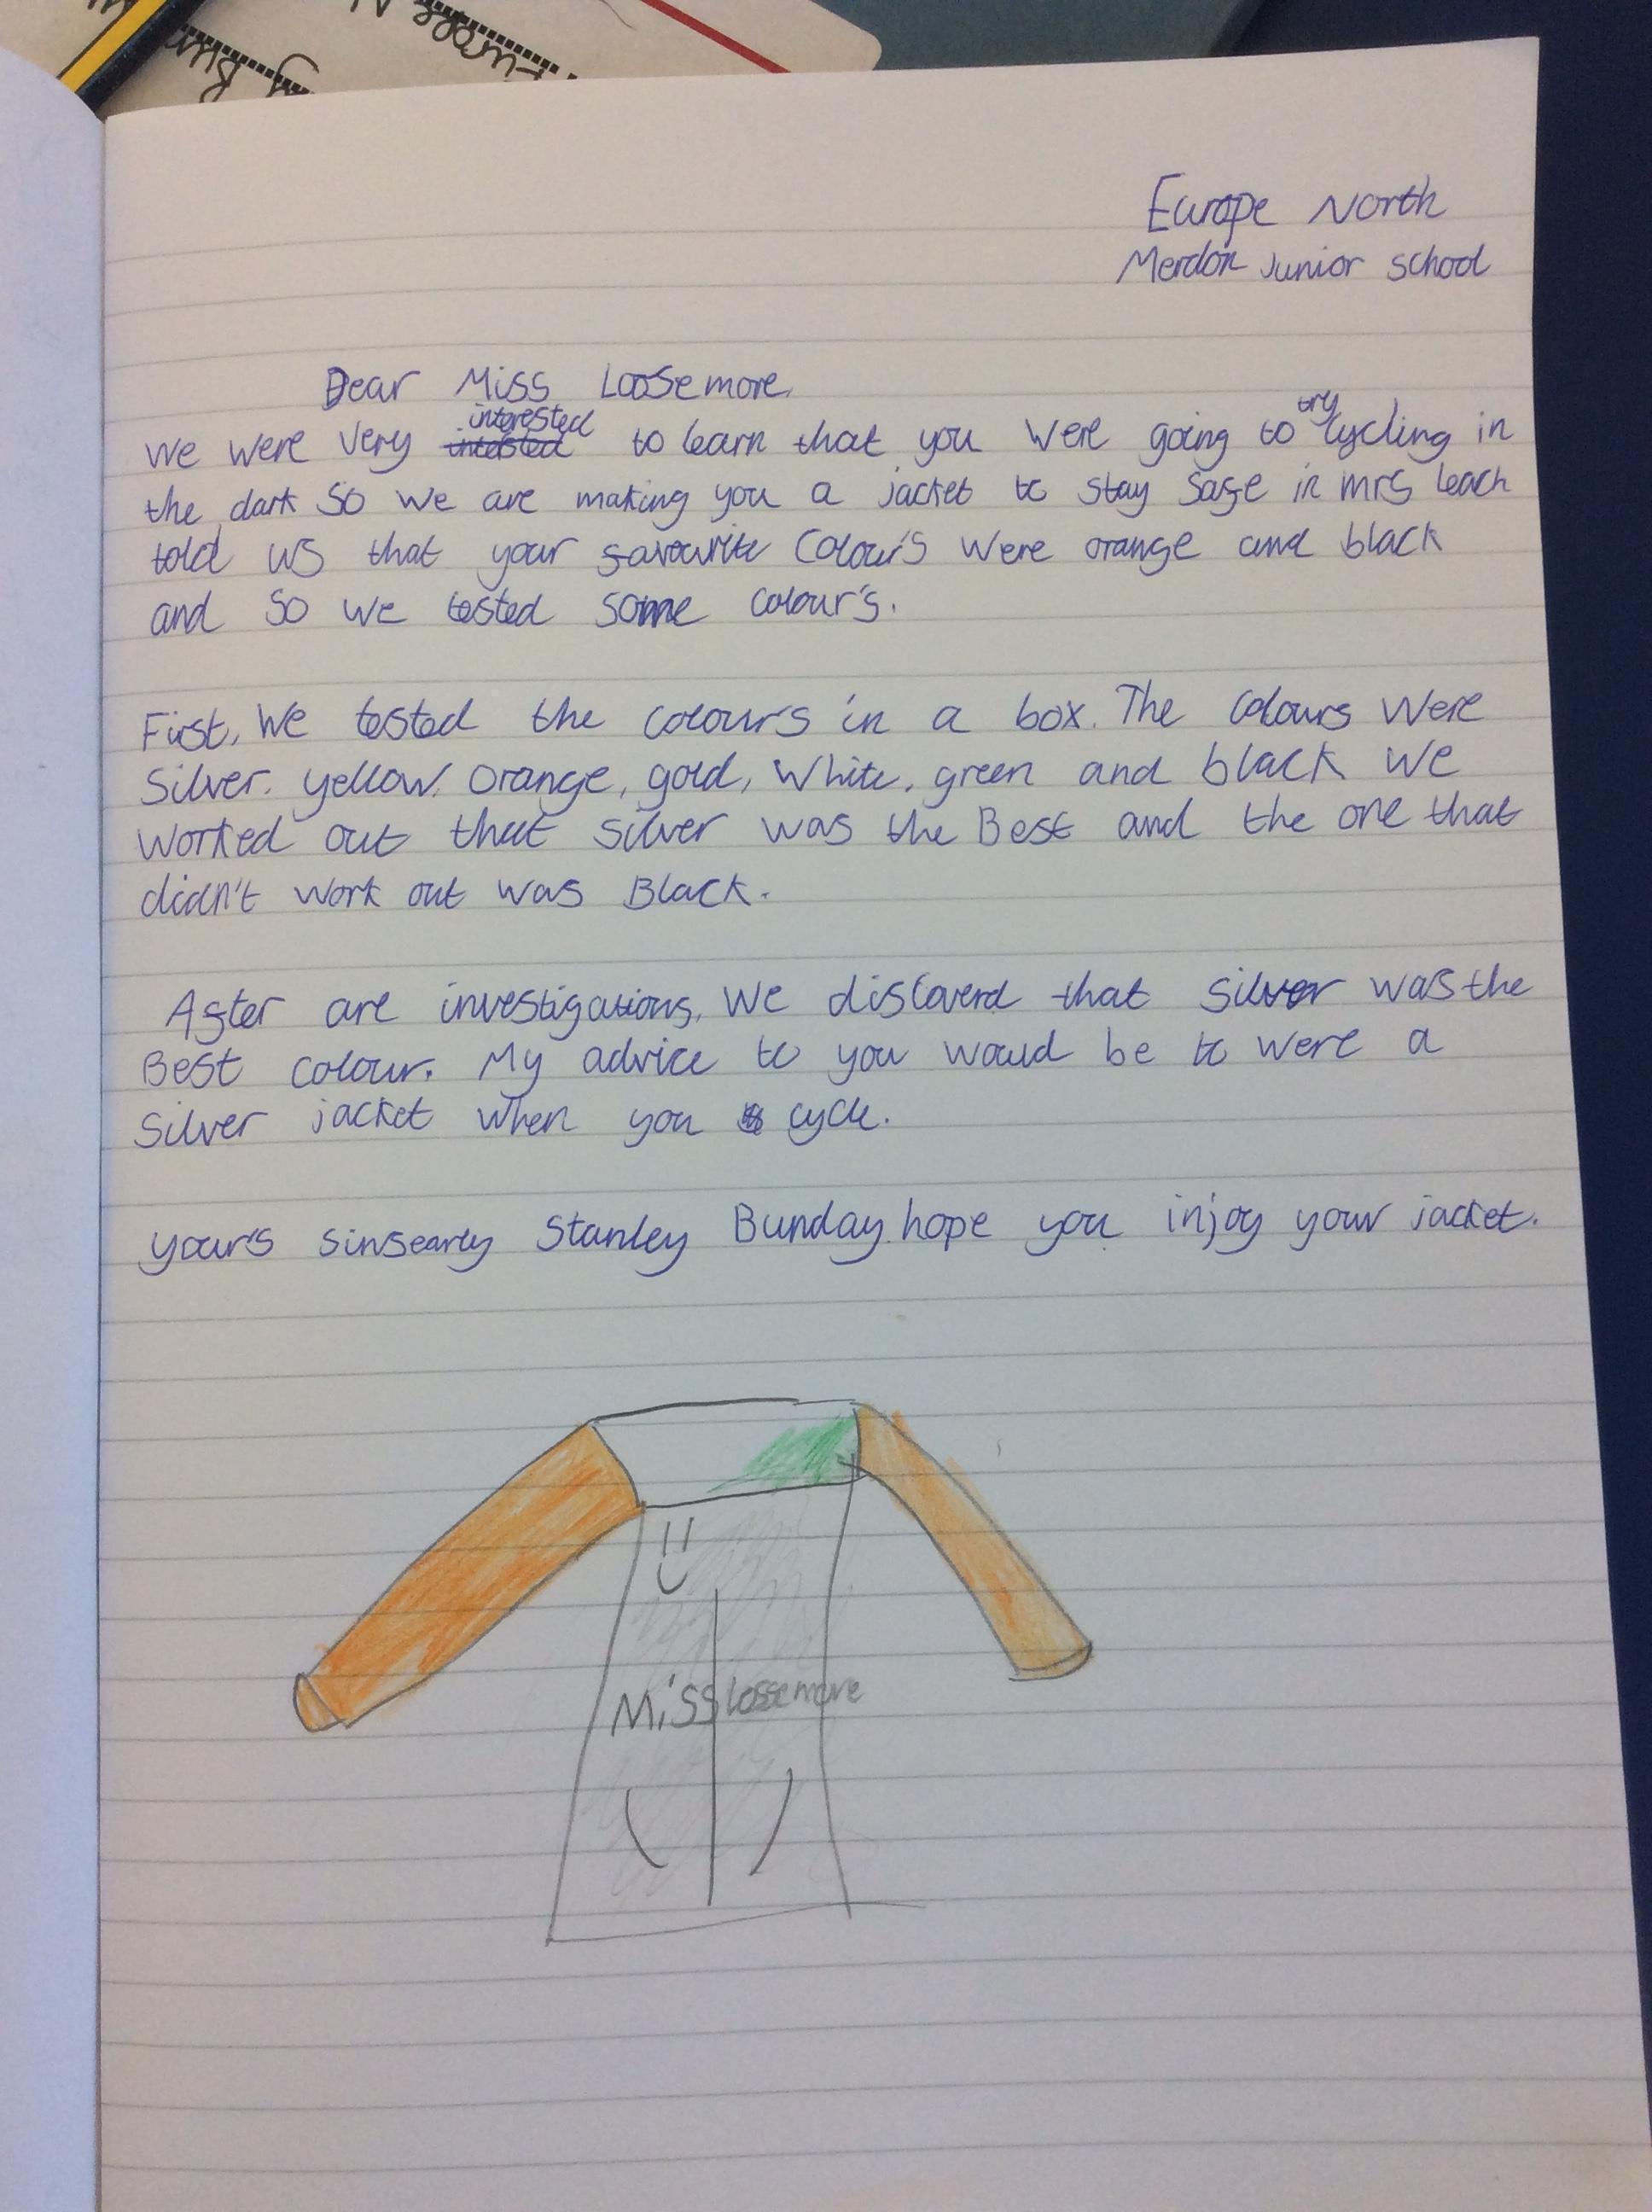 Europe North
Merdon Junior school
Dear Miss Loosemore,
interested try
we were very intested to learn that you were going to cycling in
the dark so we are making you a jacket to stay safe in mrs leach
told us that your favourite colour's were orange and black
and so we tested some colour's.
First, we tested the colours in a box. The colours were
silver, yellow, orange, gold, white, green and black we
worked out that silver was the Best and the one that
didn't work out was Black.
After are investigations, We discoverd that silver was the
Best colour. My advice to you would be to were a
silver jacket when you cycle.
your's sinsearly Stanley Bunday hope you injoy your jacket.
Miss lossemore